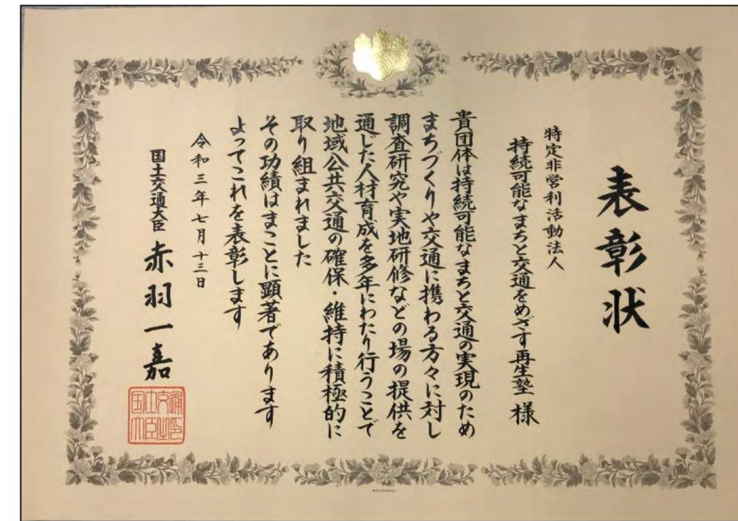 表彰状
特定非営利活動法人
持続可能なまちと交通をめざす再生塾 様
貴団体は持続可能なまちと交通の実現のため
まちづくりや交通に携わる方々に対し
調査研究や実地研修などの場の提供を
通じた人材育成を多年にわたり行うことで
地域公共交通の確保・維持に積極的に
取り組まれました
その功績はまことに顕著であります
よってこれを表彰します
令和三年七月十三日
国土交通大臣 赤羽一嘉